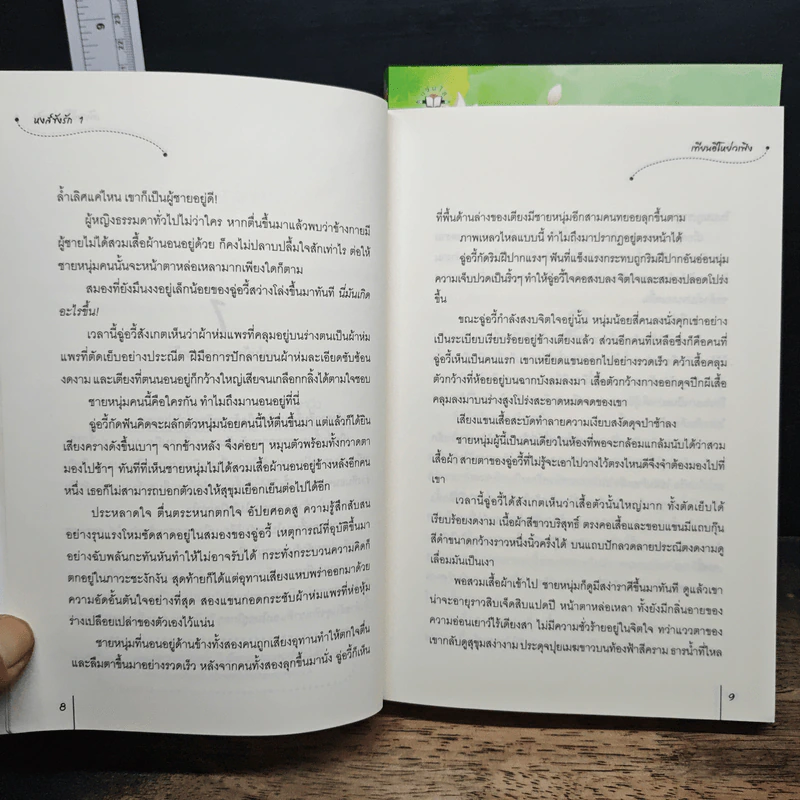 หงส์ขังรัก 1
ล้ำเลิศแค่ไหน เขาก็เป็นผู้ชายอยู่ดี!
ผู้หญิงธรรมดาทั่วไปไม่ว่าใคร หากตื่นขึ้นมาแล้วพบว่าข้างกายมี
ผู้ชายไม่ได้สวมเสื้อผ้านอนอยู่ด้วย ก็คงไม่ปลาบปลื้มใจสักเท่าไร ต่อให้
ชายหนุ่มคนนั้นจะหน้าตาหล่อเหลามากเพียงใดก็ตาม
สมองที่ยังมึนงงอยู่เล็กน้อยของฉู่อวี้สว่างโล่งขึ้นมาทันที นี่มันเกิด
อะไรขึ้น!
เวลานี้ฉู่อวี้สังเกตเห็นว่าผ้าห่มแพรที่คลุมอยู่บนร่างตนเป็นผ้าห่ม
แพรที่ตัดเย็บอย่างประณีต ฝีมือการปักลายบนผ้าห่มละเอียดซับซ้อน
งดงาม และเตียงที่ตนนอนอยู่ก็กว้างใหญ่เสียจนเกลือกกลิ้งได้ตามใจชอบ
ชายหนุ่มคนนี้คือใครกัน ทำไมถึงมานอนอยู่ที่นี่
ฉู่อวี้กัดฟันคิดจะผลักตัวหนุ่มน้อยคนนี้ให้ตื่นขึ้นมา แต่แล้วก็ได้ยิน
เสียงครางดังขึ้นเบาๆ จากข้างหลัง จึงค่อยๆ หมุนตัวพร้อมทั้งกวาดตา
มองไปช้าๆ ทันทีที่เห็นชายหนุ่มไม่ได้สวมเสื้อผ้านอนอยู่ข้างหลังอีกคน
หนึ่ง เธอก็ไม่สามารถบอกตัวเองให้สุขุมเยือกเย็นต่อไปได้อีก
ประหลาดใจ ตื่นตระหนกตกใจ อัปยศอดสู ความรู้สึกสับสน
อย่างรุนแรงโหมซัดสาดอยู่ในสมองของฉู่อวี้ เหตุการณ์ที่อุบัติขึ้นมา
อย่างฉับพลันกะทันหันทำให้ไม่อาจรับได้ กระทั่งกระบวนความคิดก็
ตกอยู่ในภาวะชะงักงัน สุดท้ายก็ได้แต่อุทานเสียงแหบพร่าออกมาด้วย
ความอัดอั้นตันใจอย่างที่สุด สองแขนกอดกระชับผ้าห่มแพรที่ห่อหุ้ม
ร่างเปลือยเปล่าของตัวเองไว้แน่น
ชายหนุ่มที่นอนอยู่ด้านข้างทั้งสองคนถูกเสียงอุทานทำให้ตกใจตื่น
และลืมตาขึ้นมาอย่างรวดเร็ว หลังจากคนทั้งสองลุกขึ้นมานั่ง ฉู่อวี้ก็เห็น
8
เทียนอีโหย่วเฟิง
ที่พื้นด้านล่างของเตียงมีชายหนุ่มอีกสามคนทยอยลุกขึ้นตาม
ภาพเหลวไหลแบบนี้ ทำไมถึงมาปรากฏอยู่ตรงหน้าได้
ฉู่อวี้กัดริมฝีปากแรงๆ ฟันที่แข็งแรงกระทบถูกริมฝีปากอันอ่อนนุ่ม
ความเจ็บปวดเป็นริ้วๆ ทำให้ฉู่อวี้ใจคอสงบลง จิตใจและสมองปลอดโปร่ง
ขึ้น
ขณะฉู่อวี้กำลังสงบจิตใจอยู่นั้น หนุ่มน้อยสี่คนลงนั่งคุกเข่าอย่าง
เป็นระเบียบเรียบร้อยอยู่ข้างเตียงแล้ว ส่วนอีกคนที่เหลือซึ่งก็คือคนที่
ฉู่อวี้เห็นเป็นคนแรก เขาเหยียดแขนออกไปอย่างรวดเร็ว คว้าเสื้อคลุม
ตัวกว้างที่ห้อยอยู่บนฉากบังลมลงมา เสื้อตัวกว้างกางออกดุจปีกผีเสื้อ
คลุมลงมาบนร่างสูงโปร่งสะอาดหมดจดของเขา
เสียงแขนเสื้อสะบัดทำลายความเงียบสงัดดุจป่าช้าลง
ชายหนุ่มผู้นี้เป็นคนเดียวในห้องที่พอจะกล้อมแกล้มนับได้ว่าสวม
เสื้อผ้า สายตาของฉู่อวี้ที่ไม่รู้จะเอาไปวางไว้ตรงไหนดีจึงจำต้องมองไปที่
เขา
เวลานี้ฉู่อวี้ได้สังเกตเห็นว่าเสื้อตัวนั้นใหญ่มาก ทั้งตัดเย็บได้
เรียบร้อยงดงาม เนื้อผ้าสีขาวบริสุทธิ์ ตรงคอเสื้อและขอบแขนมีแถบกุ๊น
สีดำขนาดกว้างราวหนึ่งนิ้วครึ่งได้ บนแถบปักลวดลายประณีตงดงามดู
เลื่อมมันเป็นเงา
พอสวมเสื้อผ้าเข้าไป ชายหนุ่มก็ดูมีสง่าราศีขึ้นมาทันที ดูแล้วเขา
น่าจะอายุราวสิบเจ็ดสิบแปดปี หน้าตาหล่อเหลา ทั้งยังมีกลิ่นอายของ
ความอ่อนเยาว์ไร้เดียงสา ไม่มีความชั่วร้ายอยู่ในจิตใจ ทว่าแววตาของ
เขากลับดูสุขุมสง่างาม ประดุจปุยเมฆขาวบนท้องฟ้าสีคราม ธารน้ำที่ไหล
9